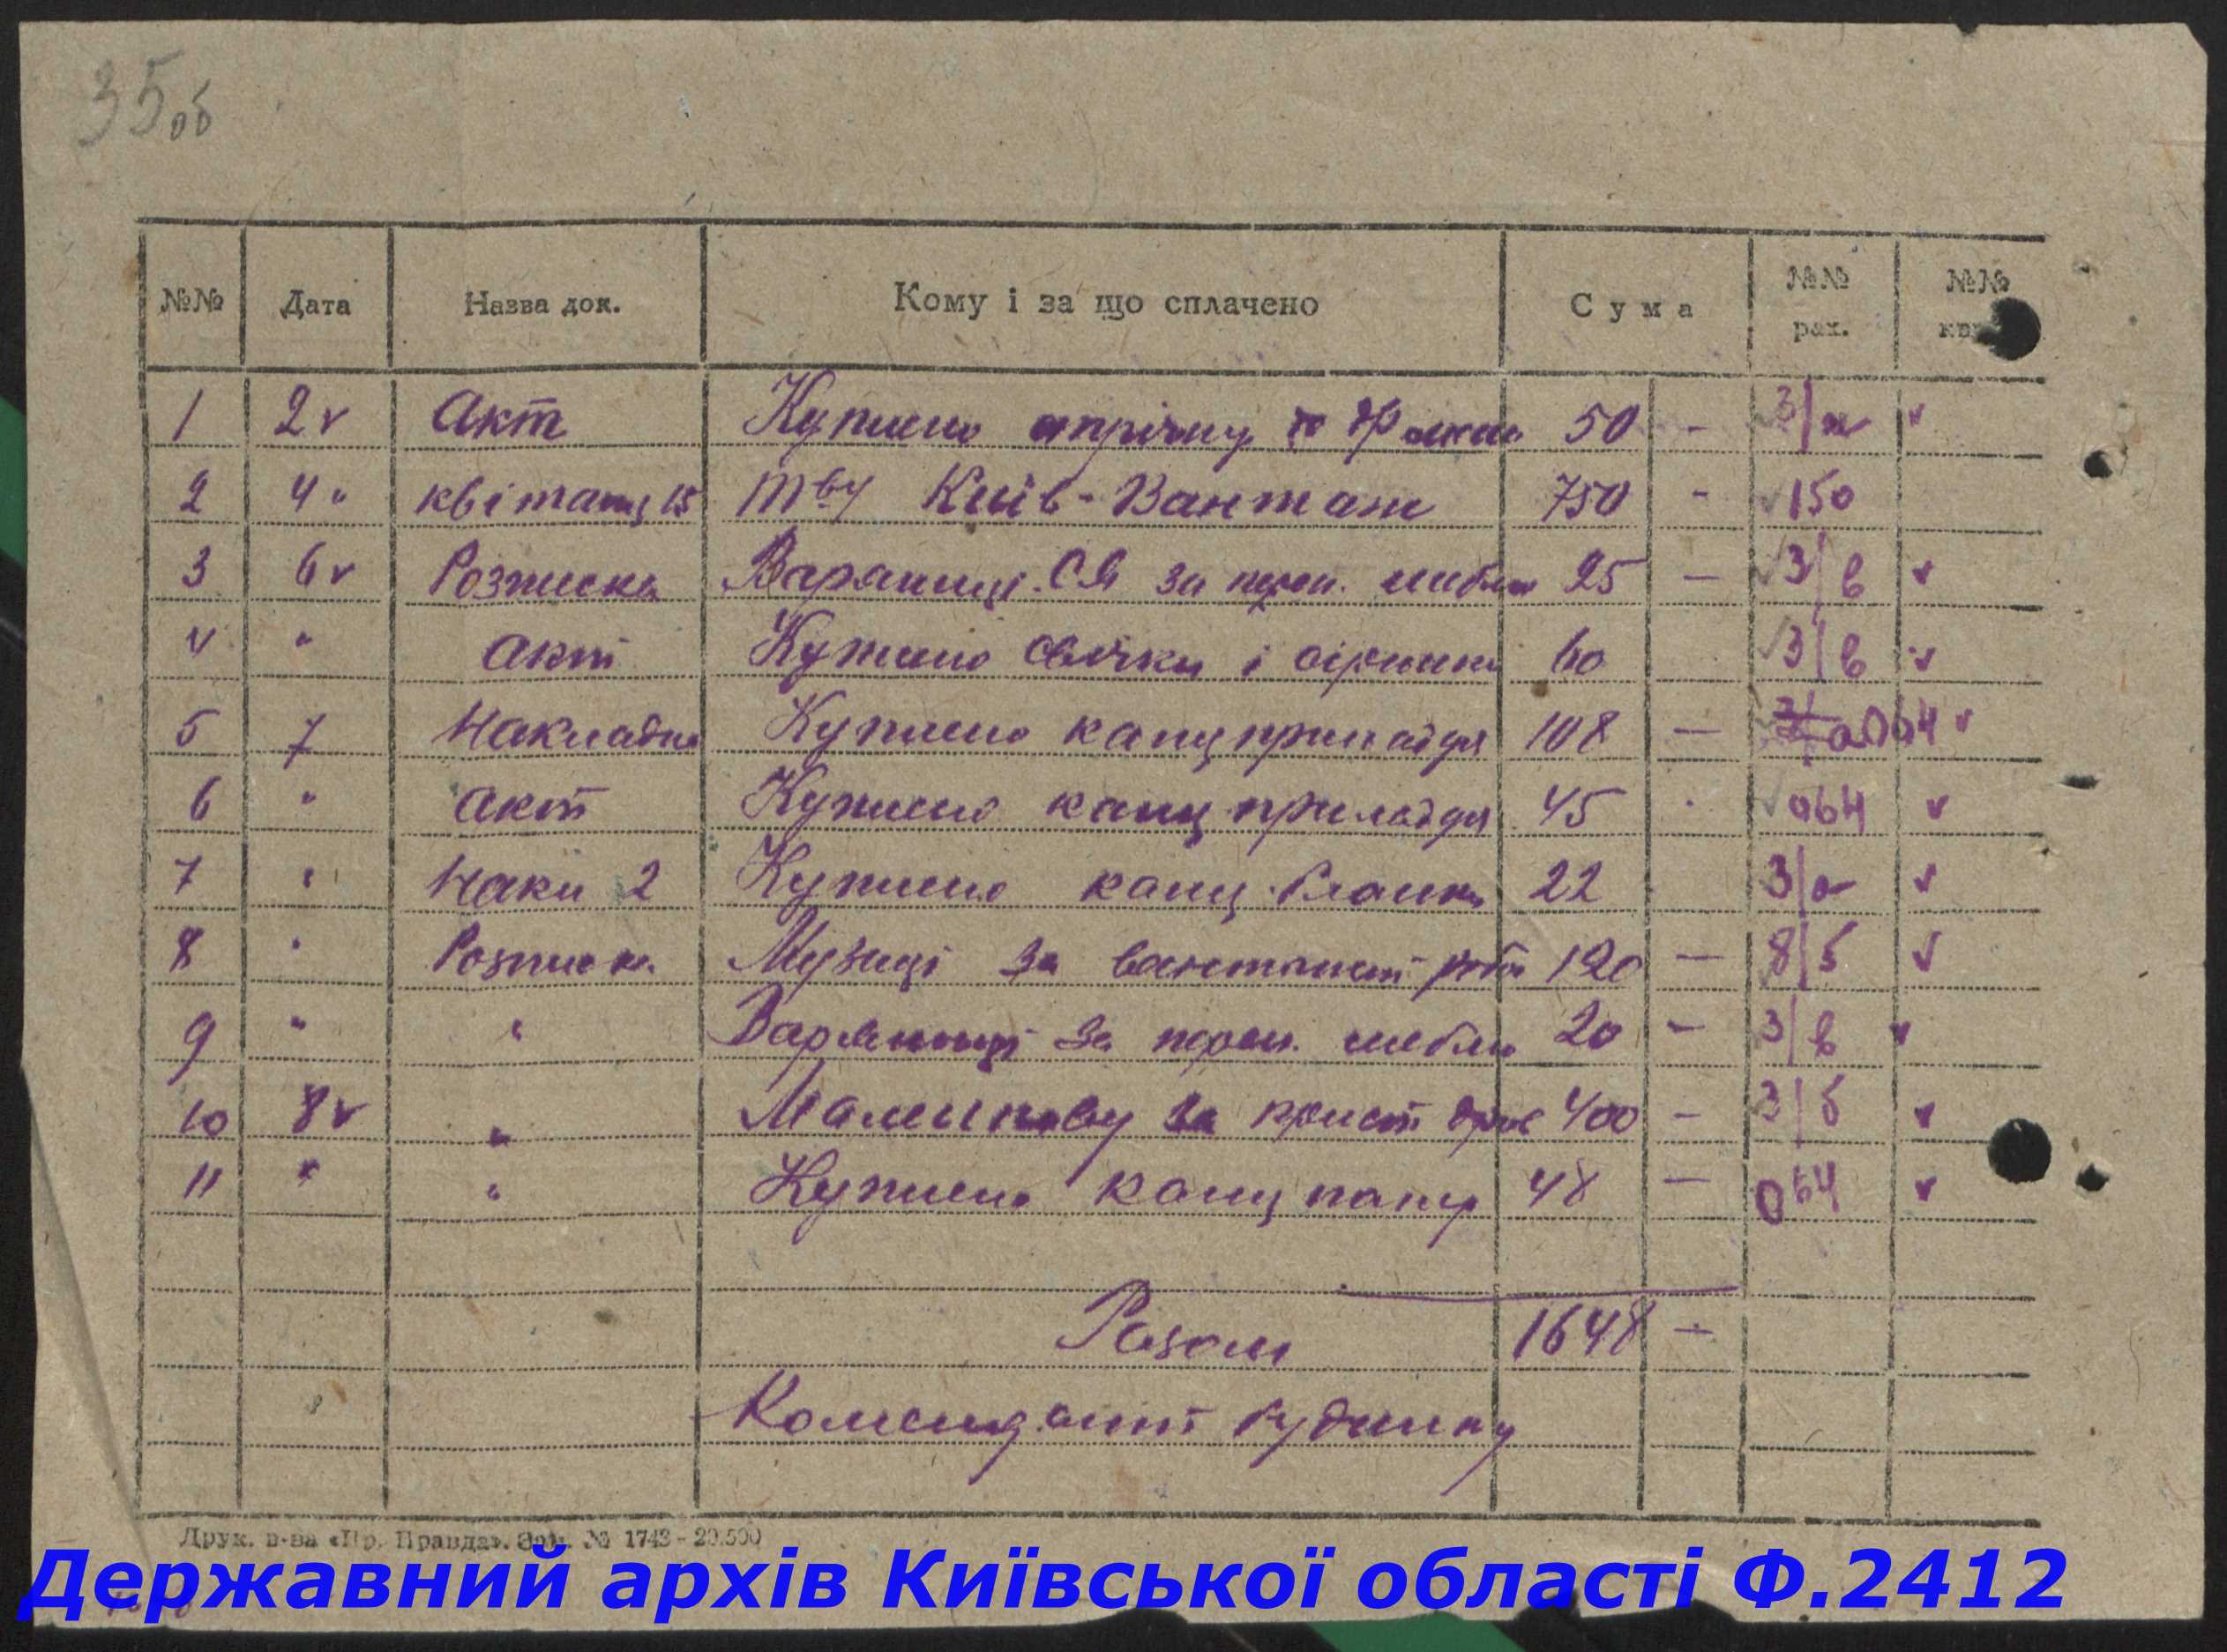 35 об
№№ Дата Назва док. Кому і за що сплачено Сума №№ рах. №№
1 2 v Акт Куплено стрічку 50 - 3/а v
2 4 " квітанц 15 Т-ву Київ-Вантаж 750 - v 150
3 6 v Розписка Варяниці. за перен. меблів 25 — v 3/в v
4 " акт Куплено свічки і сірники 60 v 3/в v
5 7 Накладна Куплено канцприладдя 108 — 064 v
6 " акт Куплено канц приладдя 45 · v 064 v
7 " Накл 2 Куплено канц. бланки 22 3/а v
8 " Розписка Музиці за вантажні роб 120 — 8/б v
9 " " Варяниці за перен. меблів 20 — 3/в v
10 8 v " за дров 400 — 3/б v
11 " " Куплено канц папір 48 — 064 v
Разом 1648 —
Комендант будинку
Друк. в-ва «Пр. Правда». Зам. № 1743 – 20.500
Державний архів Київської області Ф.2412